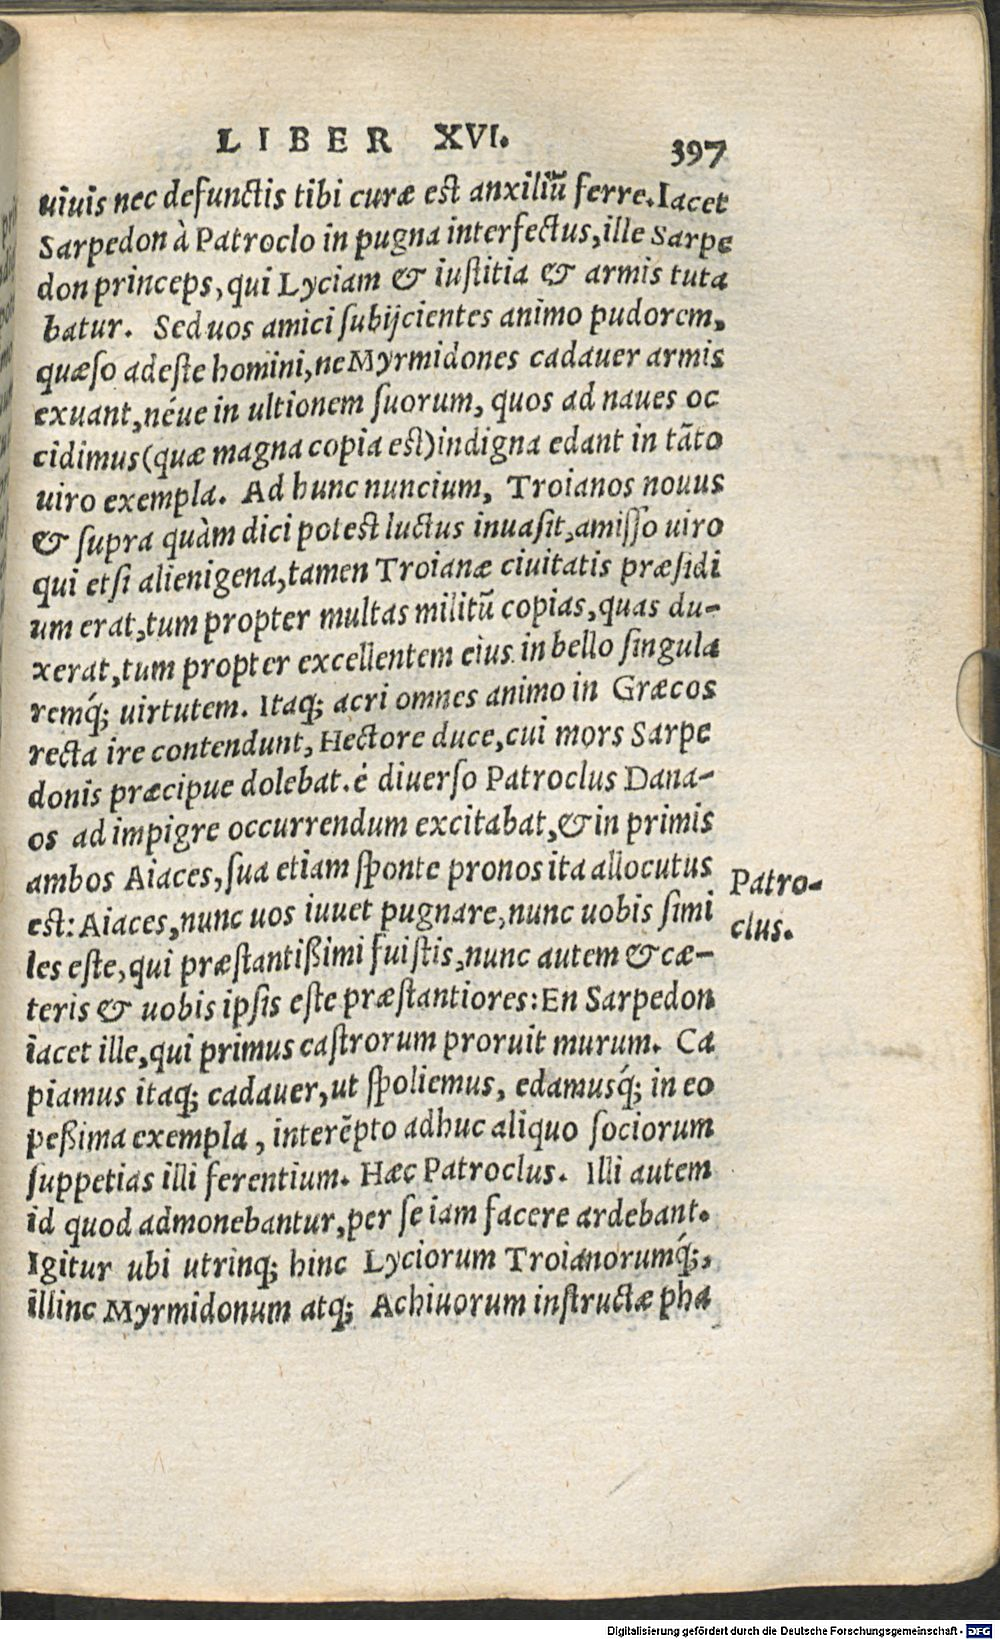 LIBER XVI. 397
uiuis nec defunctis tibi curæ est anxiliũ ferre. Iacet
Sarpedon à Patroclo in pugna interfectus, ille Sarpe
don princeps, qui Lyciam & iustitia & armis tuta
batur. Sed uos amici subijcientes animo pudorem,
quæso adeste homini, ne Myrmidones cadauer armis
exuant, néue in ultionem suorum, quos ad naues oc
cidimus (quæ magna copia est) indigna edant in tãto
uiro exempla. Ad hunc nuncium, Troianos nouus
& supra quàm dici potest luctus inuasit, amisso uiro
qui etsi alienigena, tamen Troianæ ciuitatis præsidi
um erat, tum propter multas militũ copias, quas du-
xerat, tum propter excellentem eius in bello singula
remq́; uirtutem. Itaq; acri omnes animo in Græcos
recta ire contendunt, Hectore duce, cui mors Sarpe
donis præcipue dolebat. é diuerso Patroclus Dana-
os ad impigre occurrendum excitabat, & in primis
ambos Aiaces, sua etiam sponte pronos ita allocutus
est: Aiaces, nunc uos iuuet pugnare, nunc uobis simi
les este, qui præstantißimi fuistis, nunc autem & cæ-
teris & uobis ipsis este præstantiores: En Sarpedon
iacet ille, qui primus castrorum proruit murum. Ca
piamus itaq; cadauer, ut spoliemus, edamusq́; in eo
peßima exempla, interẽpto adhuc aliquo sociorum
suppetias illi ferentium. Hæc Patroclus. Illi autem
id quod admonebantur, per se iam facere ardebant.
Igitur ubi utrinq; hinc Lyciorum Troianorumq́;,
illinc Myrmidonum atq; Achiuorum instructæ pha
Patro-
clus.
Digitalisierung gefördert durch die Deutsche Forschungsgemeinschaft - DFG